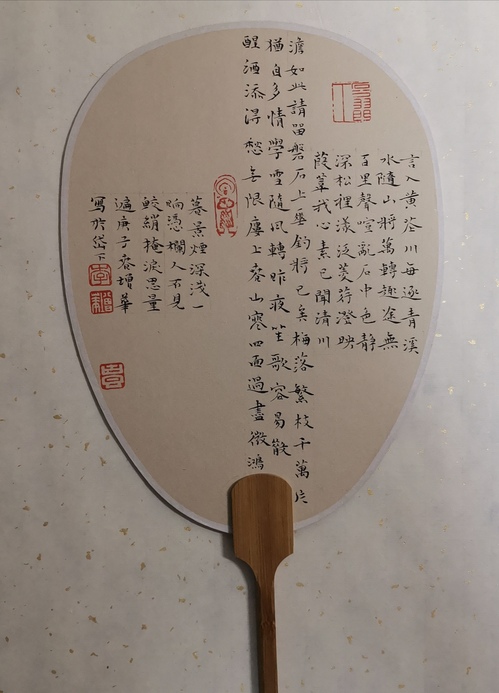 言入黃花川每逐青溪
水隨山將萬轉趣途無
百里聲喧亂石中色靜
深松裡漾泛菱荇澄映
葭葦我心素已閒清川
澹如此請留磐石上垂釣將已矣梅落繁枝千萬片
猶自多情學雪隨風轉昨夜笙歌容易散
醒酒添得愁无限樓上春山寒四面過盡微鴻
暮景煙深淺一
晌憑欄人不見
鮫綃掩淚思量
遍庚子春增華
寫於岱下